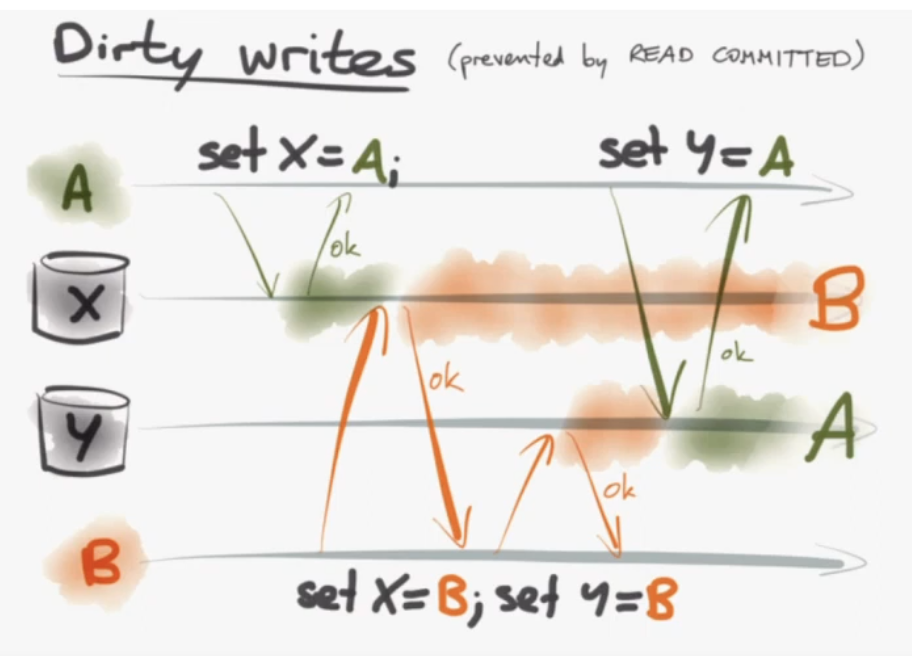 Dirty writes (prevented by READ COMMITTED)
set X=A; set Y=A
A
ok
X B
ok ok
Y A
ok
B
set X=B; set Y=B